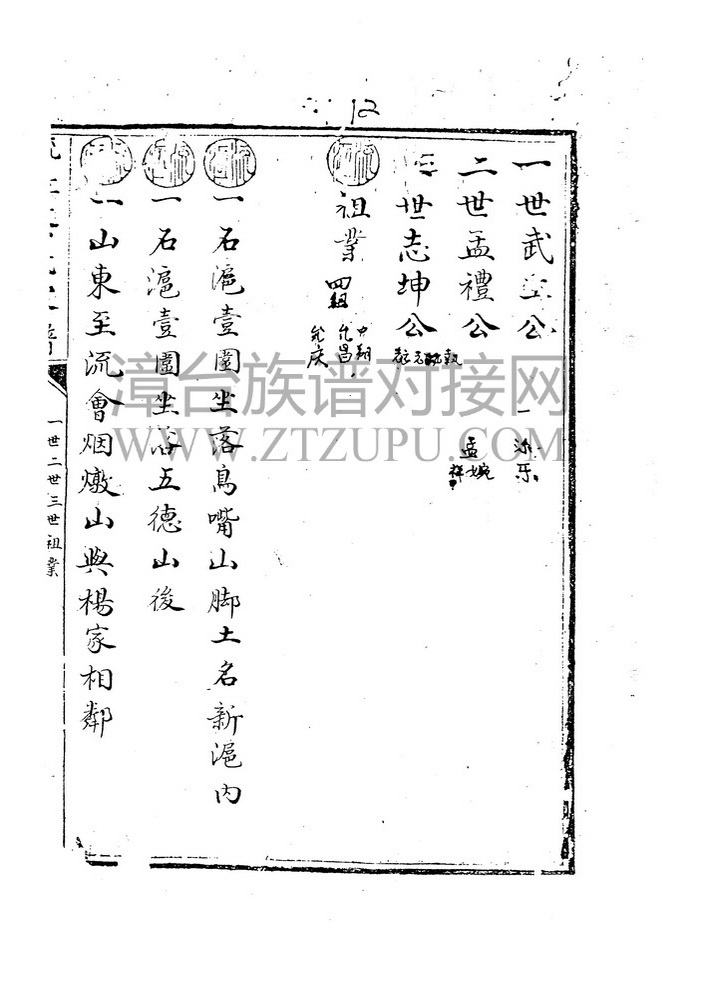 12
一世武公
二世孟禮公
世志坤公
祖業 四組
允昌
允庆
一石滬壹圍坐落鳥嘴山脚土名新滬內
一石滬壹圍坐落五德山後
一山東至流會烟燉山與楊家相鄰
一世二世三世祖業
孟婉
漳台族谱对接网
WWW.ZTZUPU.COM